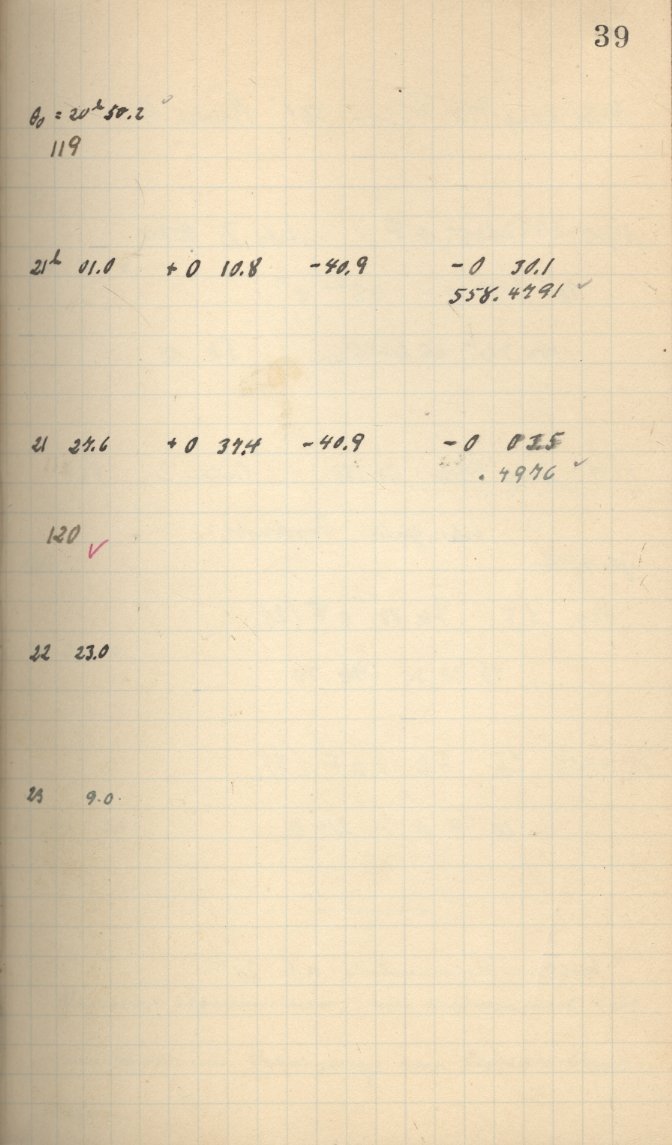 39
θ₀ = 20ʰ 50.2 ✓
119
21ʰ 01.0 + 0 10.8 - 40.9 - 0 30.1
558.4791 ✓
21 27.6 + 0 37.4 - 40.9 - 0 03.5
.4976 ✓
120 ✓
22 23.0
23 9.0